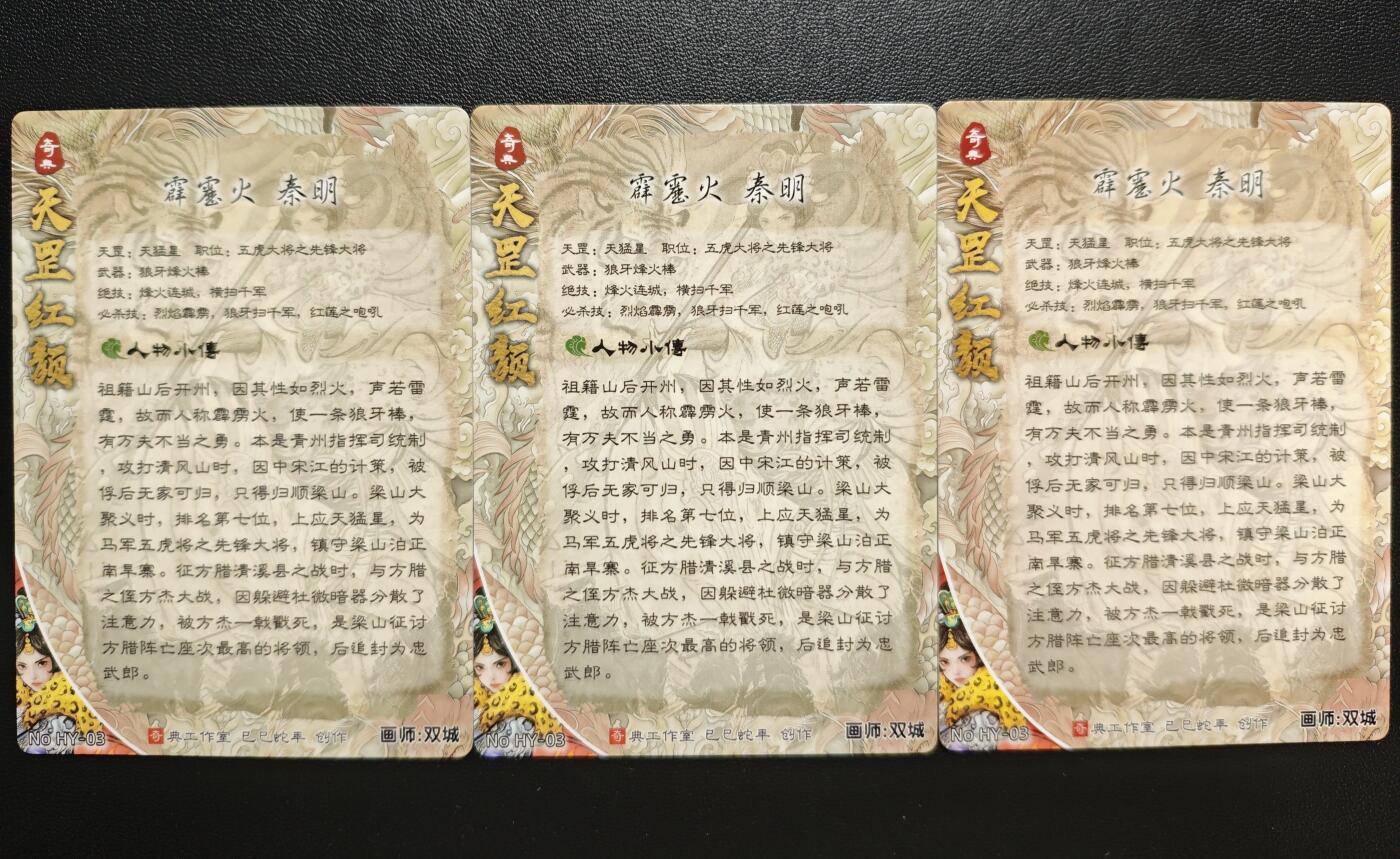 奇典
天罡红颜
霹雳火 秦明
天罡：天猛星 职位：五虎大将之先锋大将
武器：狼牙烽火棒
绝技：烽火连城，横扫千军
必杀技：烈焰霹雳，狼牙扫千军，红莲之咆吼
人物小傳
祖籍山后开州，因其性如烈火，声若雷
霆，故而人称霹雳火，使一条狼牙棒，
有万夫不当之勇。本是青州指挥司统制
，攻打清风山时，因中宋江的计策，被
俘后无家可归，只得归顺梁山。梁山大
聚义时，排名第七位，上应天猛星，为
马军五虎将之先锋大将，镇守梁山泊正
南旱寨。征方腊清溪县之战时，与方腊
之侄方杰大战，因躲避杜微暗器分散了
注意力，被方杰一戟戳死，是梁山征讨
方腊阵亡座次最高的将领，后追封为忠
武郎。
No HY-03
奇典工作室 已巳蛇年 创作
画师:双城
奇典
天罡红颜
霹雳火 秦明
天罡：天猛星 职位：五虎大将之先锋大将
武器：狼牙烽火棒
绝技：烽火连城，横扫千军
必杀技：烈焰霹雳，狼牙扫千军，红莲之咆吼
人物小傳
祖籍山后开州，因其性如烈火，声若雷
霆，故而人称霹雳火，使一条狼牙棒，
有万夫不当之勇。本是青州指挥司统制
，攻打清风山时，因中宋江的计策，被
俘后无家可归，只得归顺梁山。梁山大
聚义时，排名第七位，上应天猛星，为
马军五虎将之先锋大将，镇守梁山泊正
南旱寨。征方腊清溪县之战时，与方腊
之侄方杰大战，因躲避杜微暗器分散了
注意力，被方杰一戟戳死，是梁山征讨
方腊阵亡座次最高的将领，后追封为忠
武郎。
No HY-03
奇典工作室 已巳蛇年 创作
画师:双城
奇典
天罡红颜
霹雳火 秦明
天罡：天猛星 职位：五虎大将之先锋大将
武器：狼牙烽火棒
绝技：烽火连城，横扫千军
必杀技：烈焰霹雳，狼牙扫千军，红莲之咆吼
人物小傳
祖籍山后开州，因其性如烈火，声若雷
霆，故而人称霹雳火，使一条狼牙棒，
有万夫不当之勇。本是青州指挥司统制
，攻打清风山时，因中宋江的计策，被
俘后无家可归，只得归顺梁山。梁山大
聚义时，排名第七位，上应天猛星，为
马军五虎将之先锋大将，镇守梁山泊正
南旱寨。征方腊清溪县之战时，与方腊
之侄方杰大战，因躲避杜微暗器分散了
注意力，被方杰一戟戳死，是梁山征讨
方腊阵亡座次最高的将领，后追封为忠
武郎。
No HY-03
奇典工作室 已巳蛇年 创作
画师:双城